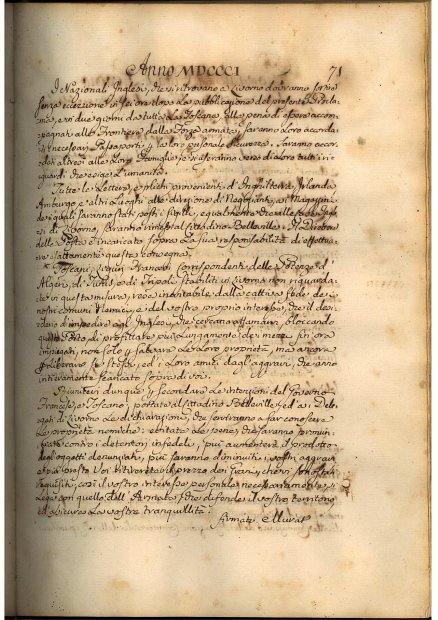 Anno MDCCCI
71
I Nazionali Inglesi, che si ritrovano a Livorno dovranno sortire
senza eccezione in sei ore dopo la pubblicazione del presente Procla-
ma, e in due giorni da tutta la Toscana, alla pena di essere accom-
pagnati alle Frontiere dalla Forza armata, saranno loro accorda-
ti i necessari Passaporti, e la loro personale sicurezza. Saranno accor-
dati altresì alle loro Famiglie, e si useranno verso di loro tutti i ri-
guardi che esige l'umanità.
Tutte le Lettere, e plichi provenienti d'Inghilterra, Irlanda
Amburgo e altri Luoghi alla direzione di Negozianti, ai Magazzini
dei quali saranno stati posti i sigilli, egualmente che
di Livorno, saranno rimessi al Cittadino Belleville. Il Direttore
della Posta è incaricato sopra la sua responsabilità di effettua-
re esattamente questa consegna.
Toscani, Svizzeri, Francesi, Corrispondenti delle Potenze d'
Algeri, di Tunis, e di Tripoli stabiliti in Livorno non riguarda-
te in questa misura, resa inevitabile dalla cattiva fede dei
nostri comuni Nemici, e dal vostro proprio interesse, che il desi-
derio d'impedire agl'Inglesi, che cercano affamarvi, bloccando
questo Porto di profittare più lungamente dei mezzi sin ora
immaginati, non solo per salvare le loro proprietà, ma ancora
per liberare se stessi, ed i loro amici dagl'aggravi, che hanno
interamente scaricato sopra di voi.
Riuniti dunque per secondare le intenzioni del Governo
Francese, e Toscano, portate al Cittadino Belleville, ed ai Dele-
gati di Livorno le dichiarazioni, che serviranno a far conoscere
le proprietà nemiche: evitate le pene, che saranno pronun-
ziate contro i detentori infedeli, più aumenterà il prodotto
degl'oggetti denunziati, più saranno diminuiti i vostri aggravi
e più presto voi ritirerete il prezzo dei Grani, che vi sono stati
requisiti; così il vostro interesse personale necessariamente si
lega con quello dell'Armata, che difende il vostro territorio
ed assicura la vostra tranquillità.
Firmato Murat